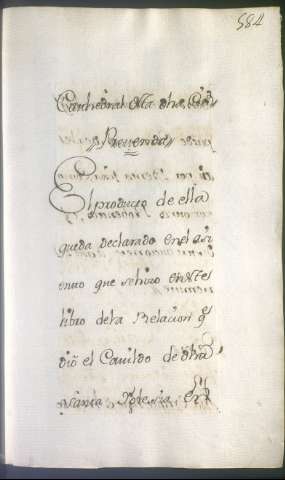 584
Cathedral de dha Ciu
Prevenda
El producto de ella
queda declarado en el asi
ento que se hizo en este
libro de la Relacion q
dió el Cavildo de dha
santa Yglesia, en